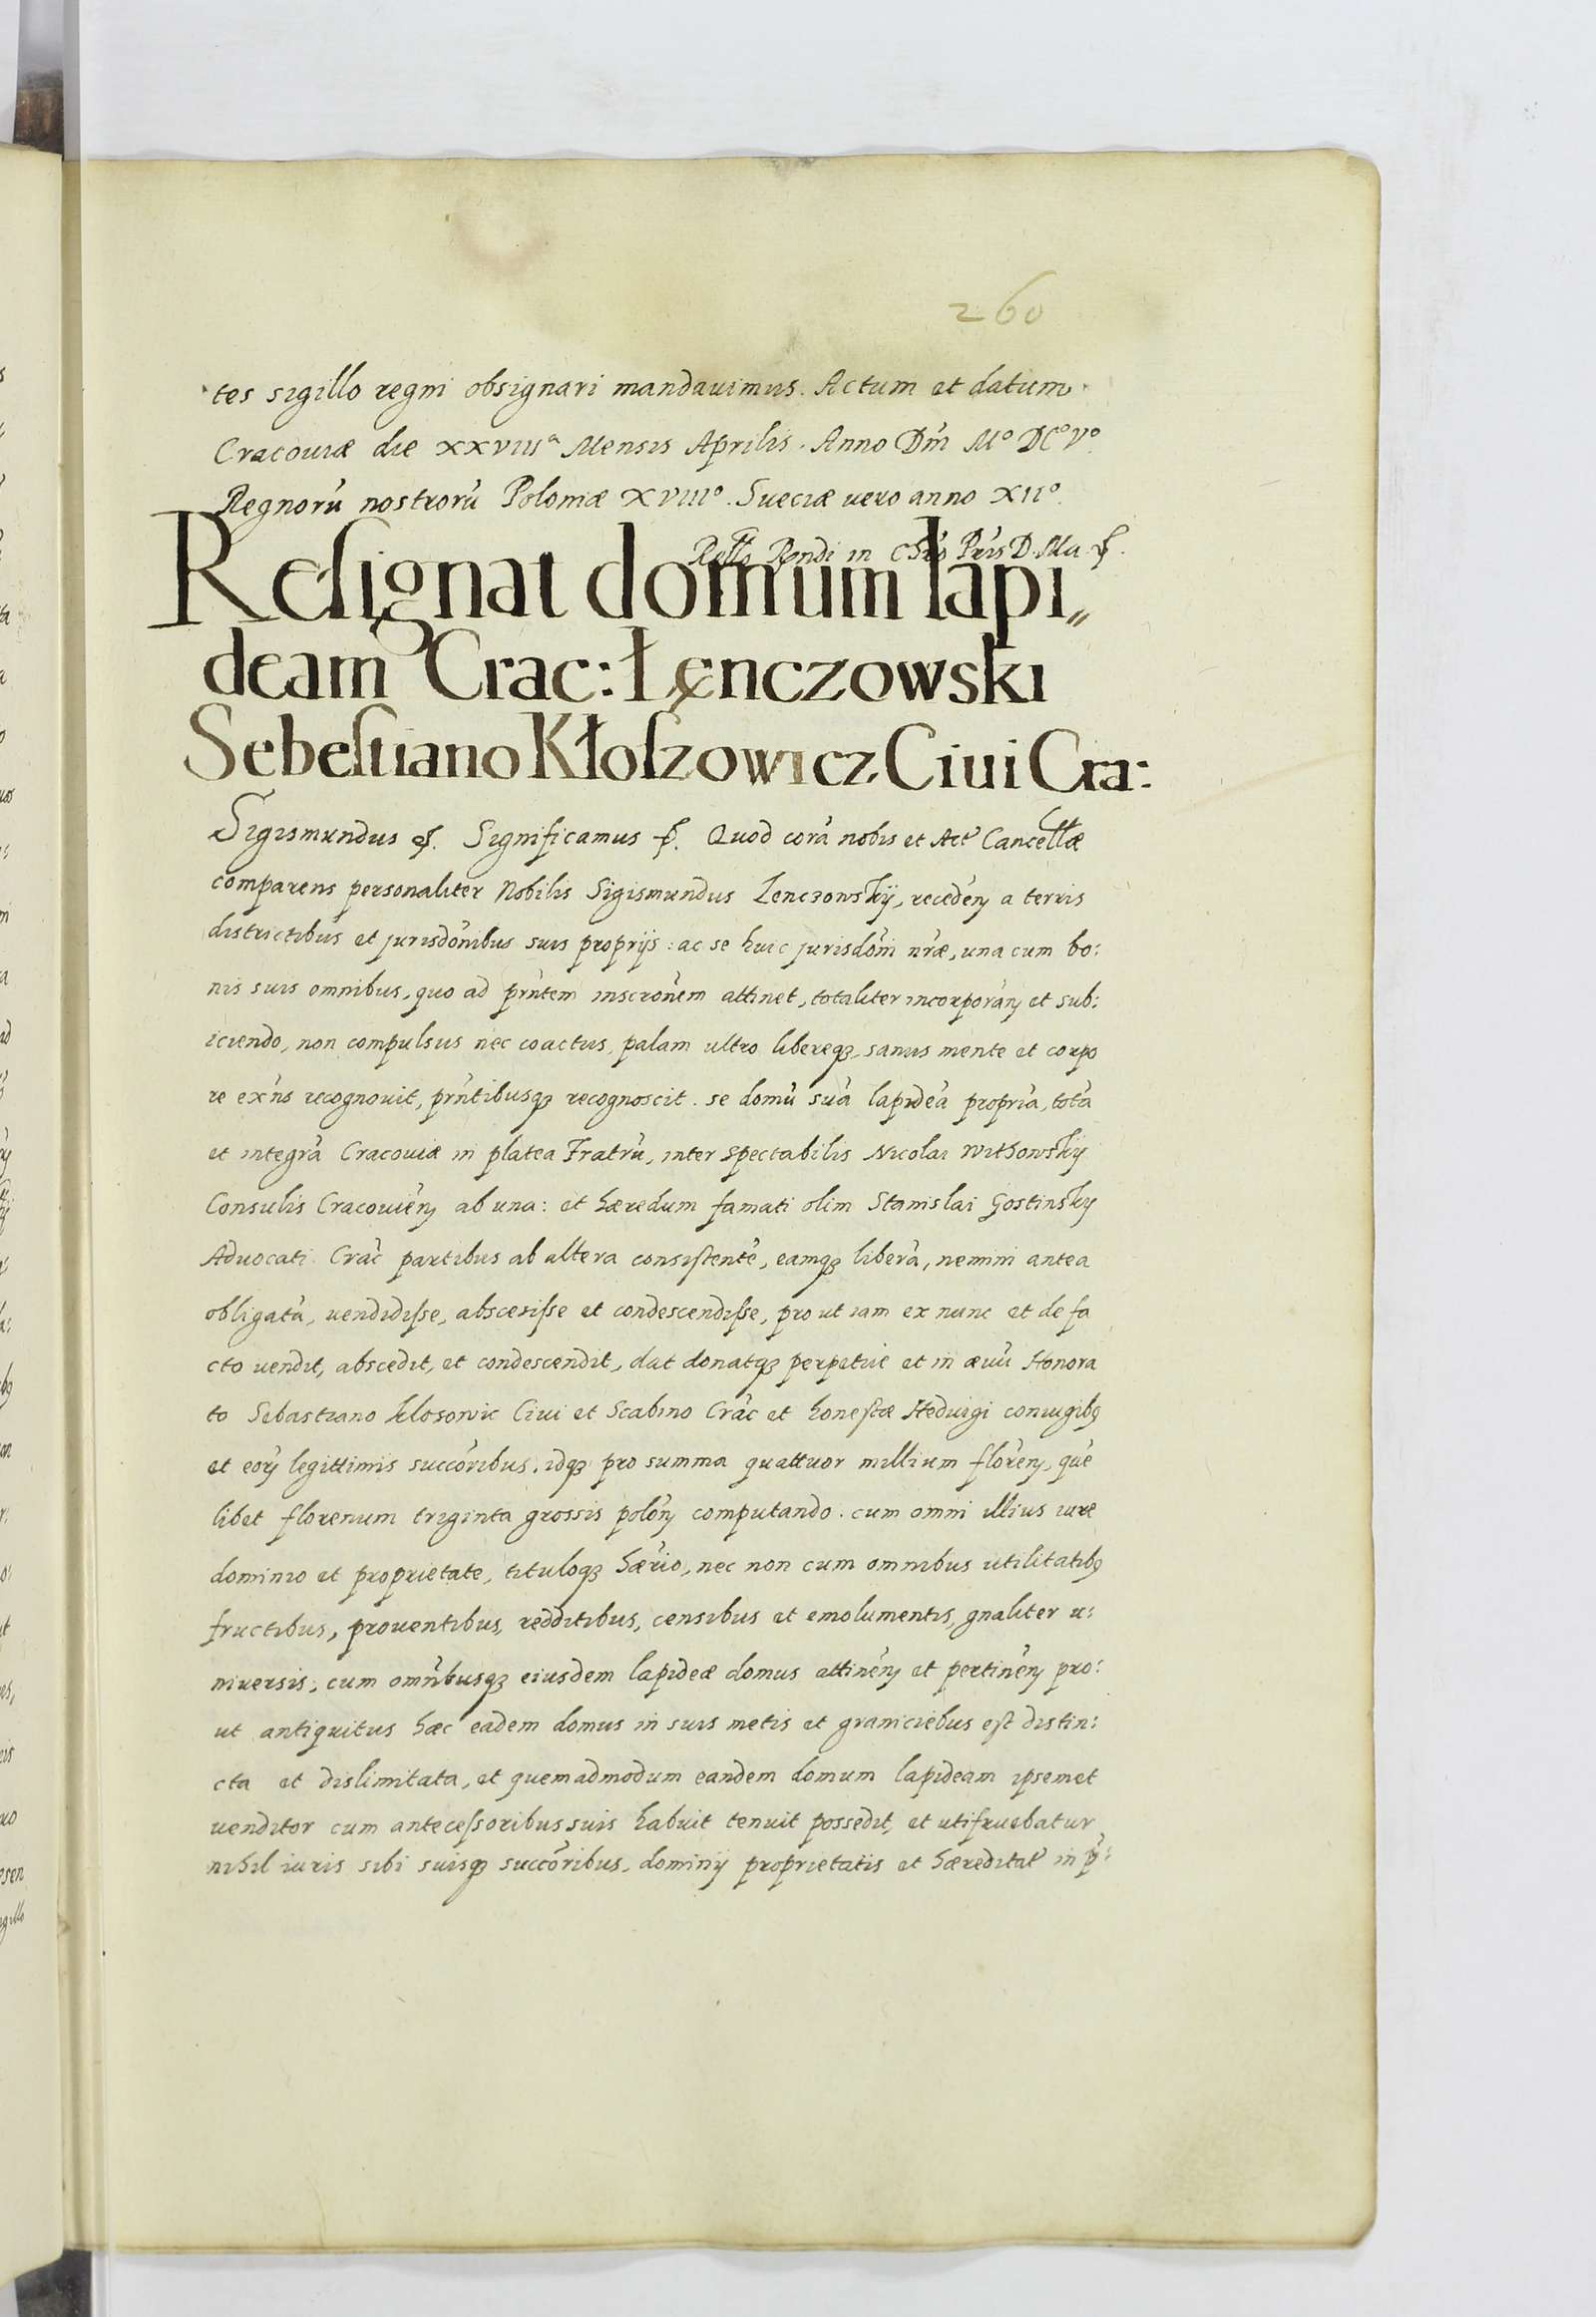 260
tes sigillo regni obsignari mandauimus. Actum et datum
Cracouiæ die XXVIIIª Mensis Aprilis. Anno Dñi Mº DCº Vº.
Regnorũ nostrorũ Poloniæ XVIIIº. Sueciæ uero anno XIIº.
Rello Rendi in Chro Pris D. Ma.
Resignat domum lapi„
deam Crac: Łęnczowski
Sebestiano Kłoszowicz Ciui Cra:
Sigismundus Significamus Quod corã nobis et Act Cancellæ
comparens personaliter Nobilis Sigismundus Lenczowskij, recedeñ a terris
districtibus et jurisdõnibus suis proprijs: ac se huic jurisdõni nr̃æ, una cum bo:
nis suis omnibus, quo ad pr̃ntem inscrõnem attinet, totaliter incorporañ et sub:
iciendo, non compulsus nec coactus, palam ultro libereqȝ, sanus mente et corpo
re exñs recognouit, pr̃ntibusqȝ recognoscit. se domũ suã lapideã propriã, totã
et integrã Cracouiæ in platea Fratrũ, inter spectabilis Nicolai Withowsky
Consulis Cracouieñ ab una: et hæredum famati olim Stanislai Gostinsky
Aduocati Crac̃ partibus ab altera consistentẽ, eamqȝ liberã, nemini antea
obligatã, uendidisse, abscesisse et condescendisse, pro ut iam ex nunc et de fa
cto uendit, abscedit, et condescendit, dat donatqȝ perpetue et in æuũ Honora
to Sebastiano Klosowic Ciui et Scabino Crac̃ et honestæ Heduigi coniugibꝰ
et eorꝝ legittimis succõribus. idqȝ pro summa quattuor millium floreñ, quẽ
libet florenum triginta grossis poloñ computando. cum omni illius iure
dominio et proprietate, tituloqȝ hær̃io, nec non cum omnibus utilitatibꝰ
fructibus, prouentibus, redditibus, censibus et emolumentis, gnaliter u:
niuersis, cum omñibusqȝ eiusdem lapideæ domus attineñ et pertineñ pro:
ut antiquitus hæc eadem domus in suis metis et graniciebus est distin:
cta et dislimitata, et quemadmodum eandem domum lapideam ipsemet
uenditor cum antecessoribus suis habuit tenuit possedit, et utifruebatur
nihil iuris sibi suisqȝ succõribus, dominij proprietatis et hæreditat in